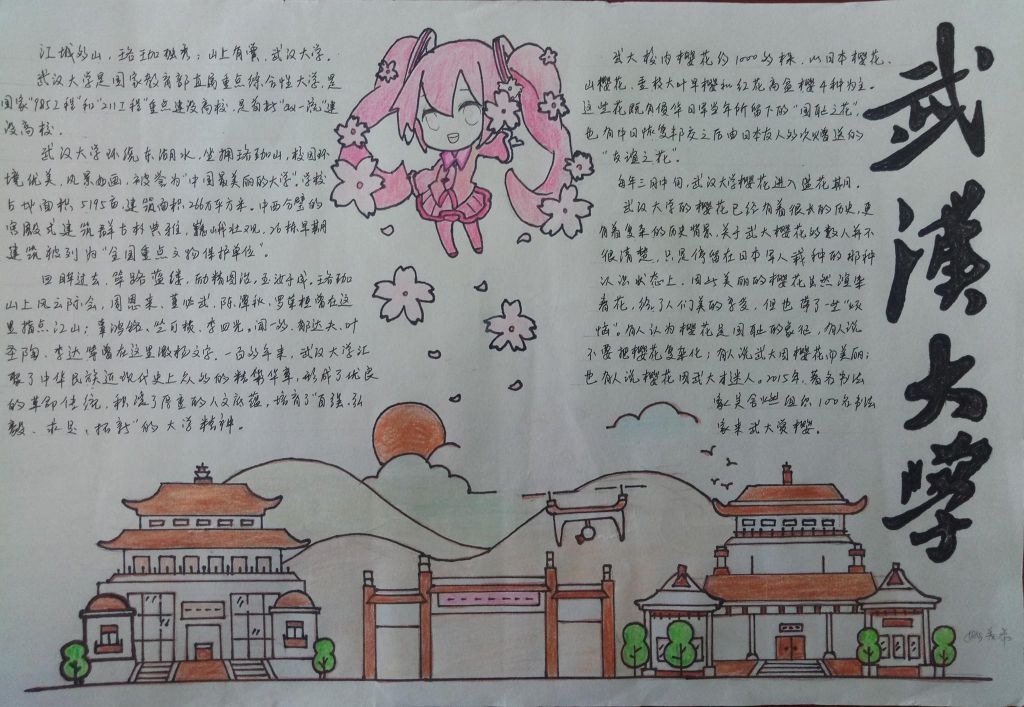 江城多山，珞珈独秀；山上有黉，武汉大学。
武汉大学是国家教育部直属重点综合性大学，是
国家"985工程"和"211工程"重点建设高校，是首批"双一流"建
设高校。
武汉大学环绕东湖水，坐拥珞珈山，校园环
境优美，风景如画，被誉为"中国最美丽的大学"。学校
占地面积5195亩，建筑面积266万平方米。中西合璧的
宫殿式建筑群古朴典雅，巍峨壮观，26栋早期
建筑被列为"全国重点文物保护单位"。
回眸过去，筚路蓝缕，励精图治，玉汝于成，珞珈
山上风云际会，周恩来、董必武、陈潭秋、罗荣桓曾在这
里指点江山；辜鸿铭、竺可桢、李四光、闻一多、郁达夫、叶
圣陶、李达等曾在这里激扬文字。一百多年来，武汉大学汇
聚了中华民族近现代史上众多的精华华章，形成了优良
的革命传统，积淀了厚重的人文底蕴，培育了"自强、弘
毅、求是、拓新"的大学精神。
武大校内樱花约1000多株，以日本樱花、
山樱花、垂枝大叶早樱和红花高盆樱4种为主。
这些花既有侵华日军当年所留下的"国耻之花"，
也有中日恢复邦交之后由日本友人多次赠送的
"友谊之花"。
每年三月中旬，武汉大学樱花进入盛花期。
武汉大学的樱花已经有着很长的历史，更
有着复杂的历史背景，关于武大樱花的数人并不
很清楚，只是停留在日本军人栽种的那种
认识状态上。因此美丽的樱花虽然渲染
春花，给了人们美的享受，但也降了一些"烦
恼"。有人认为樱花是国耻的象征，有人说
不要把樱花复杂化；有人说武大因樱花而美丽；
也有人说樱花因武大才迷人。2015年，著名书法
家 组织100名书法
家来武大赏樱。
武汉大学